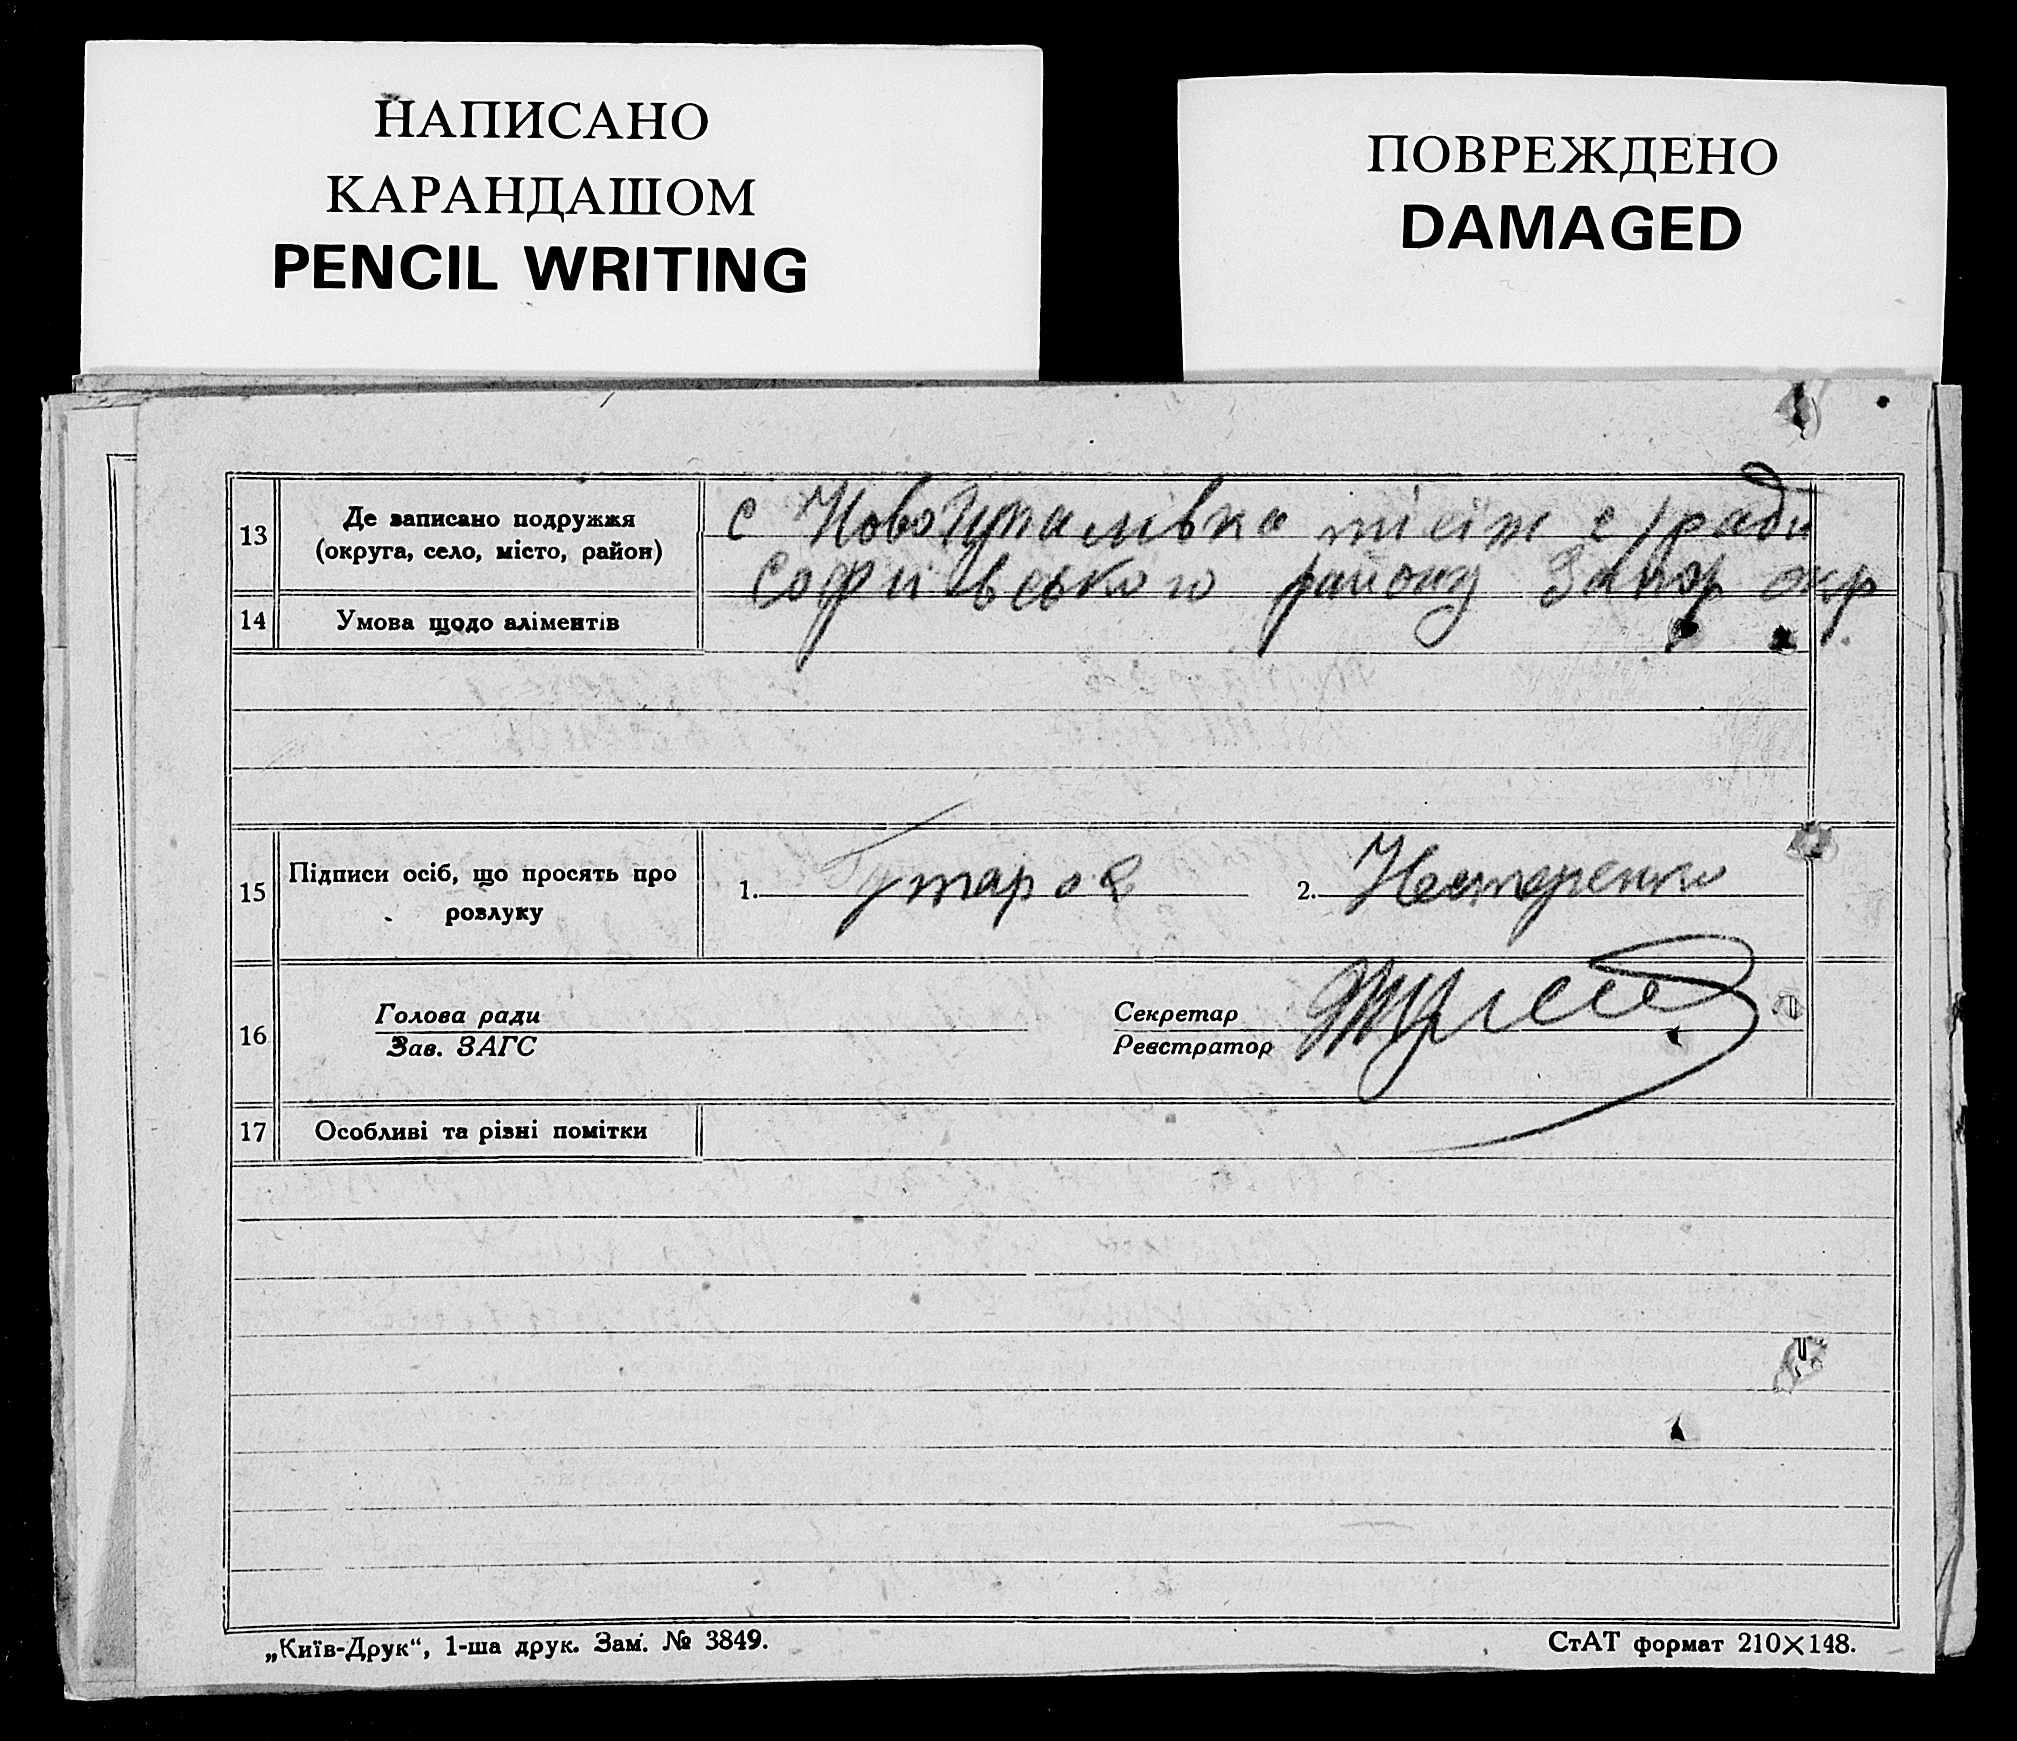 НАПИСАНО
КАРАНДАШОМ
PENCIL WRITING
ПОВРЕЖДЕНО
DAMAGED
13
Де записано подружжя
(округа, село, місто, район)
с Новогупалівка тієїж с/ради
Софіївського району Запор окр
14
Умова щодо аліментів
15
Підписи осіб, що просять про
розлуку
1.
2. Нестеренко
16
Голова ради
Зав. ЗАГС
Секретар
Реєстратор
17
Особливі та різні помітки
„Київ-Друк“, 1-ша друк. Зам. № 3849.
СтАТ формат 210×148.